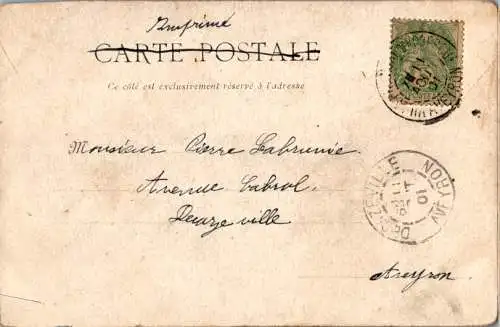 Imprimé
CARTE POSTALE
Ce côté est exclusivement réservé à l'adresse
Monsieur Pierre Labrunie
Avenue Cabrol
Decazeville
Aveyron
DECAZEVILLE
AVEYRON